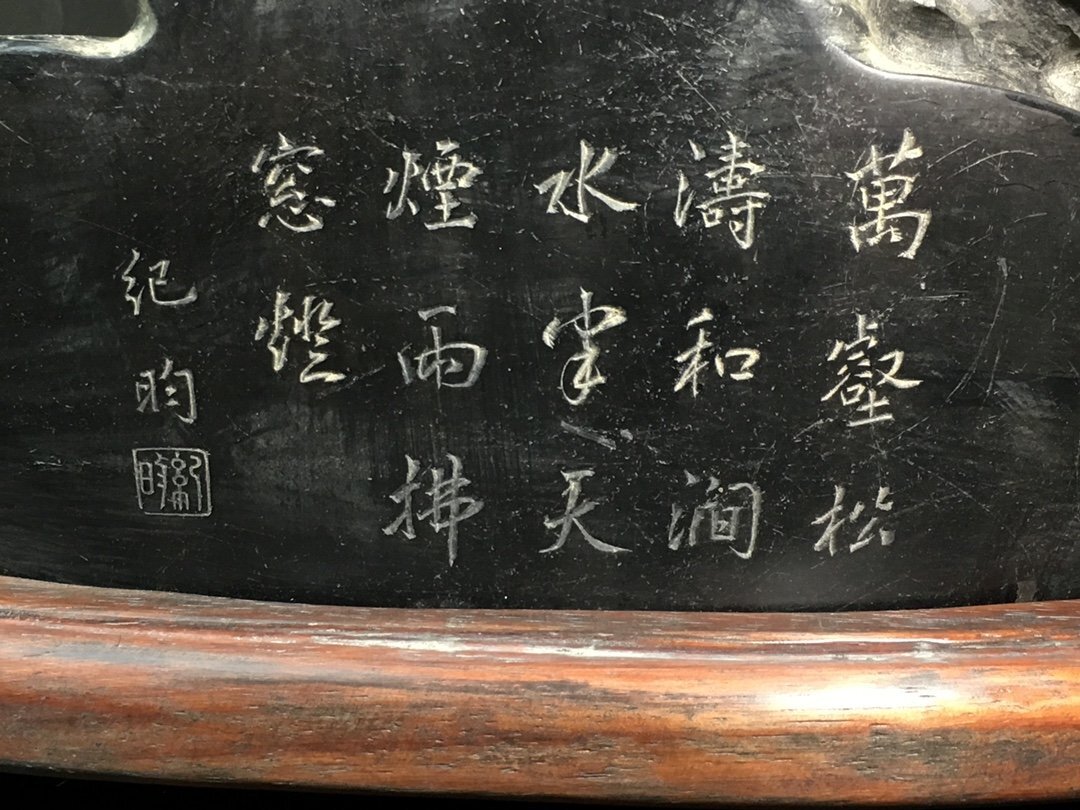 萬壑松
濤和澗
水半天
煙雨拂
窓燈
紀昀
紀昀